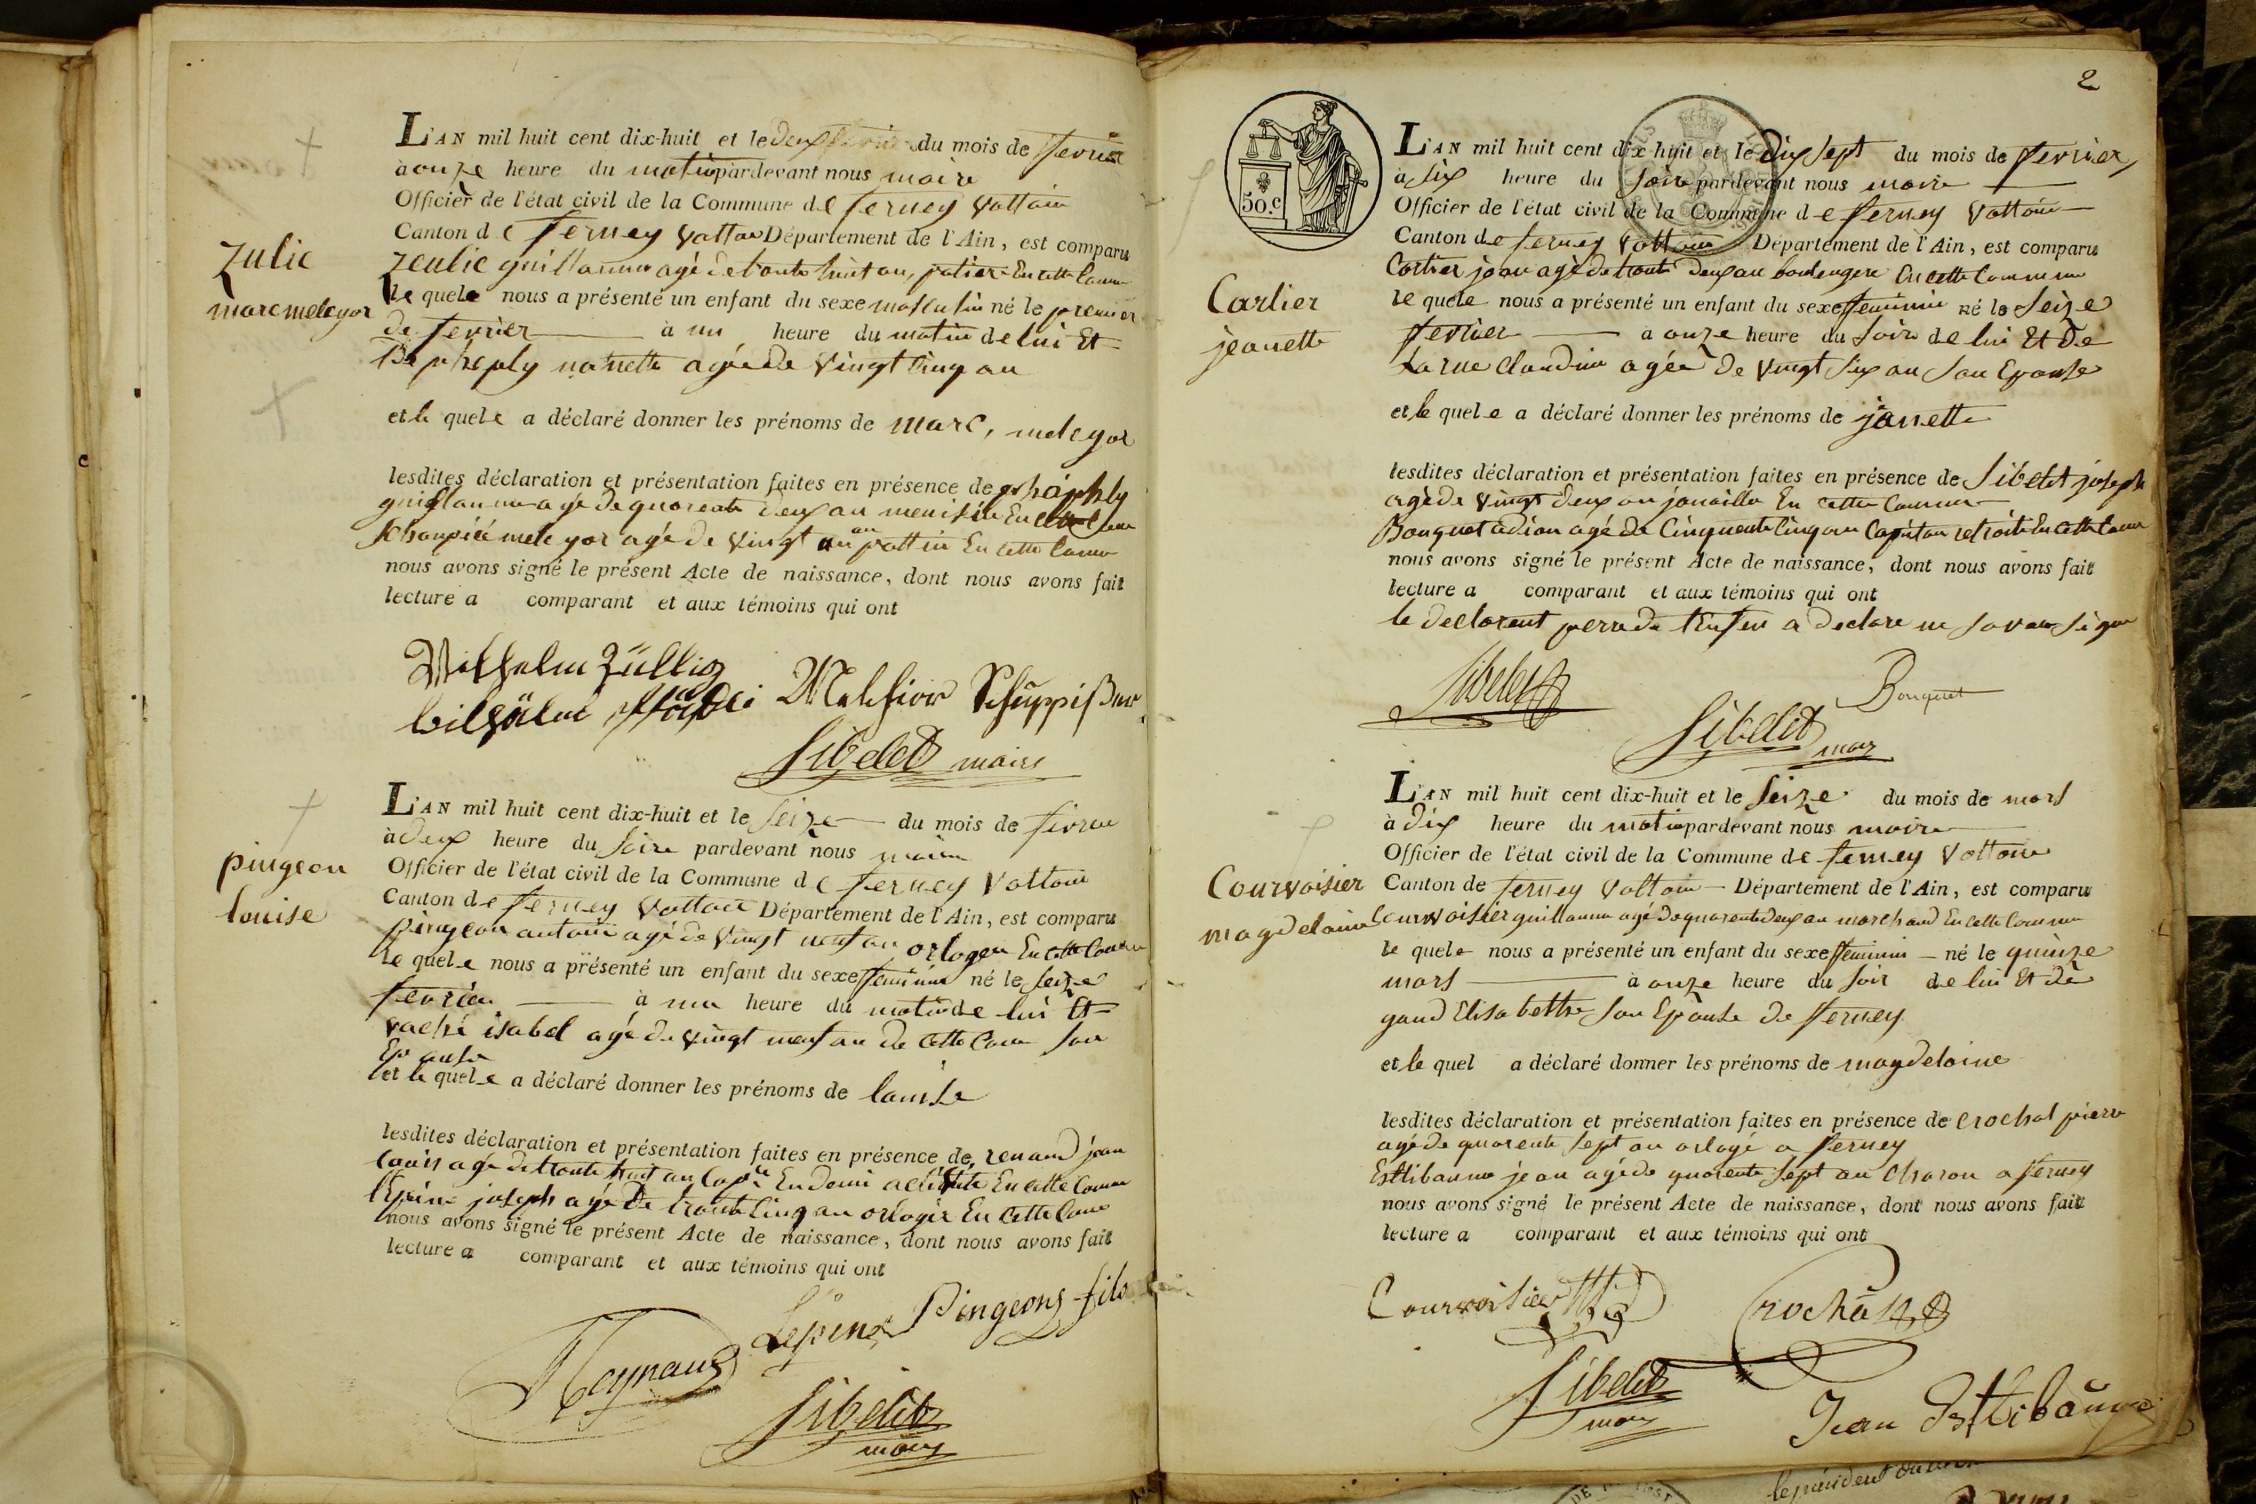 L'AN mil huit cent dix-huit et le deux du mois de fevrier
à onze heure du matin pardevant nous maire
Officier de l'état civil de la Commune de ferney Voltaire
Canton de ferney Voltaire Département de l'Ain, est comparu
Zulic
Zeulic guillaume agé de trente huit an, potier En cette Comm
marc melegor
le quele nous a présenté un enfant du sexe masculin né le premier
de fevrier à un heure du matin de lui Et
nanette agée de Vingt Cinq an
et le quele a déclaré donner les prénoms de marc, melegor
lesdites déclaration et présentation faites en présence de
guillaume agé de quarente deux an menisie En cette Comm
melegor agé de Vingt an En cette Comm
nous avons signé le présent Acte de naissance, dont nous avons fait
lecture a comparant et aux témoins qui ont
Wilhelm Züllig
Melchior Schuppißer
Sibelet maire
L'AN mil huit cent dix-huit et le Seize du mois de fevrier
à deux heure du Soire pardevant nous maire
pingeon
Officier de l'état civil de la Commune de ferney Voltaire
louise
Canton de ferney Voltaire Département de l'Ain, est comparu
pingeon antoine agé de Vingt neuf an orloger En cette Comm
le quele nous a présenté un enfant du sexe feminin né le Seize
fevrier à une heure du matin de lui Et
vaché isabel agé de Vingt neuf an de cette Comm Son
Epouse
et le quele a déclaré donner les prénoms de louise
lesdites déclaration et présentation faites en présence de renaud jean
louis agé de trente huit an Cap.ne En demi activité En cette Comm
lepine joseph agé de trente Cinq an orloger En cette Comm
nous avons signé le présent Acte de naissance, dont nous avons fait
lecture a comparant et aux témoins qui ont
Lépine Pingeons fils
Reynaud
Sibelet
maire
2
50.c
L'AN mil huit cent dix-huit et le dix Sept du mois de fevrier
à Six heure du Soire pardevant nous maire
Officier de l'état civil de la Commune de ferney Voltaire
Canton de ferney Voltaire Département de l'Ain, est comparu
Cartier jean agé de trente deux an boulengere En cette Commune
Carlier
le quele nous a présenté un enfant du sexe feminin né le Seize
jeanette
fevrier à onze heure du Soire de lui Et de
larue Claudine agée de Vingt Six an Son Epouse
et le quele a déclaré donner les prénoms de janette
lesdites déclaration et présentation faites en présence de Sibelet joseph
agé de Vingt deux an jouaille En cette Commune
Bouquet agé de Cinquente Cinq an Capitan retraite En cette Comm
nous avons signé le présent Acte de naissance, dont nous avons fait
lecture a comparant et aux témoins qui ont
le declarent pere de l'enfen a declare ne Savoir Signe
Sibelet
Bouquet
Sibelet
maire
L'AN mil huit cent dix-huit et le Seize du mois de mars
à dix heure du matin pardevant nous maire
Officier de l'état civil de la Commune de ferney Voltaire
Courvoisier
Canton de ferney Voltaire Département de l'Ain, est comparu
magdelaine
Courvoisier guillaume agé de quarente deux an marchand En cette Commune
le quele nous a présenté un enfant du sexe feminin né le quinze
mars à onze heure du Soir de lui Et de
gaud Elisabethe Son Epouse de ferney
et le quel a déclaré donner les prénoms de magdelaine
lesdites déclaration et présentation faites en présence de Crochat pierre
agé de quarente Sept an orlogé a ferney
Esttibaume jean agé de quarente Sept an Charon a ferney
nous avons signé le présent Acte de naissance, dont nous avons fait
lecture a comparant et aux témoins qui ont
Courvoisier
Crochat
Sibelet
maire
Jean Esttibaume
le président